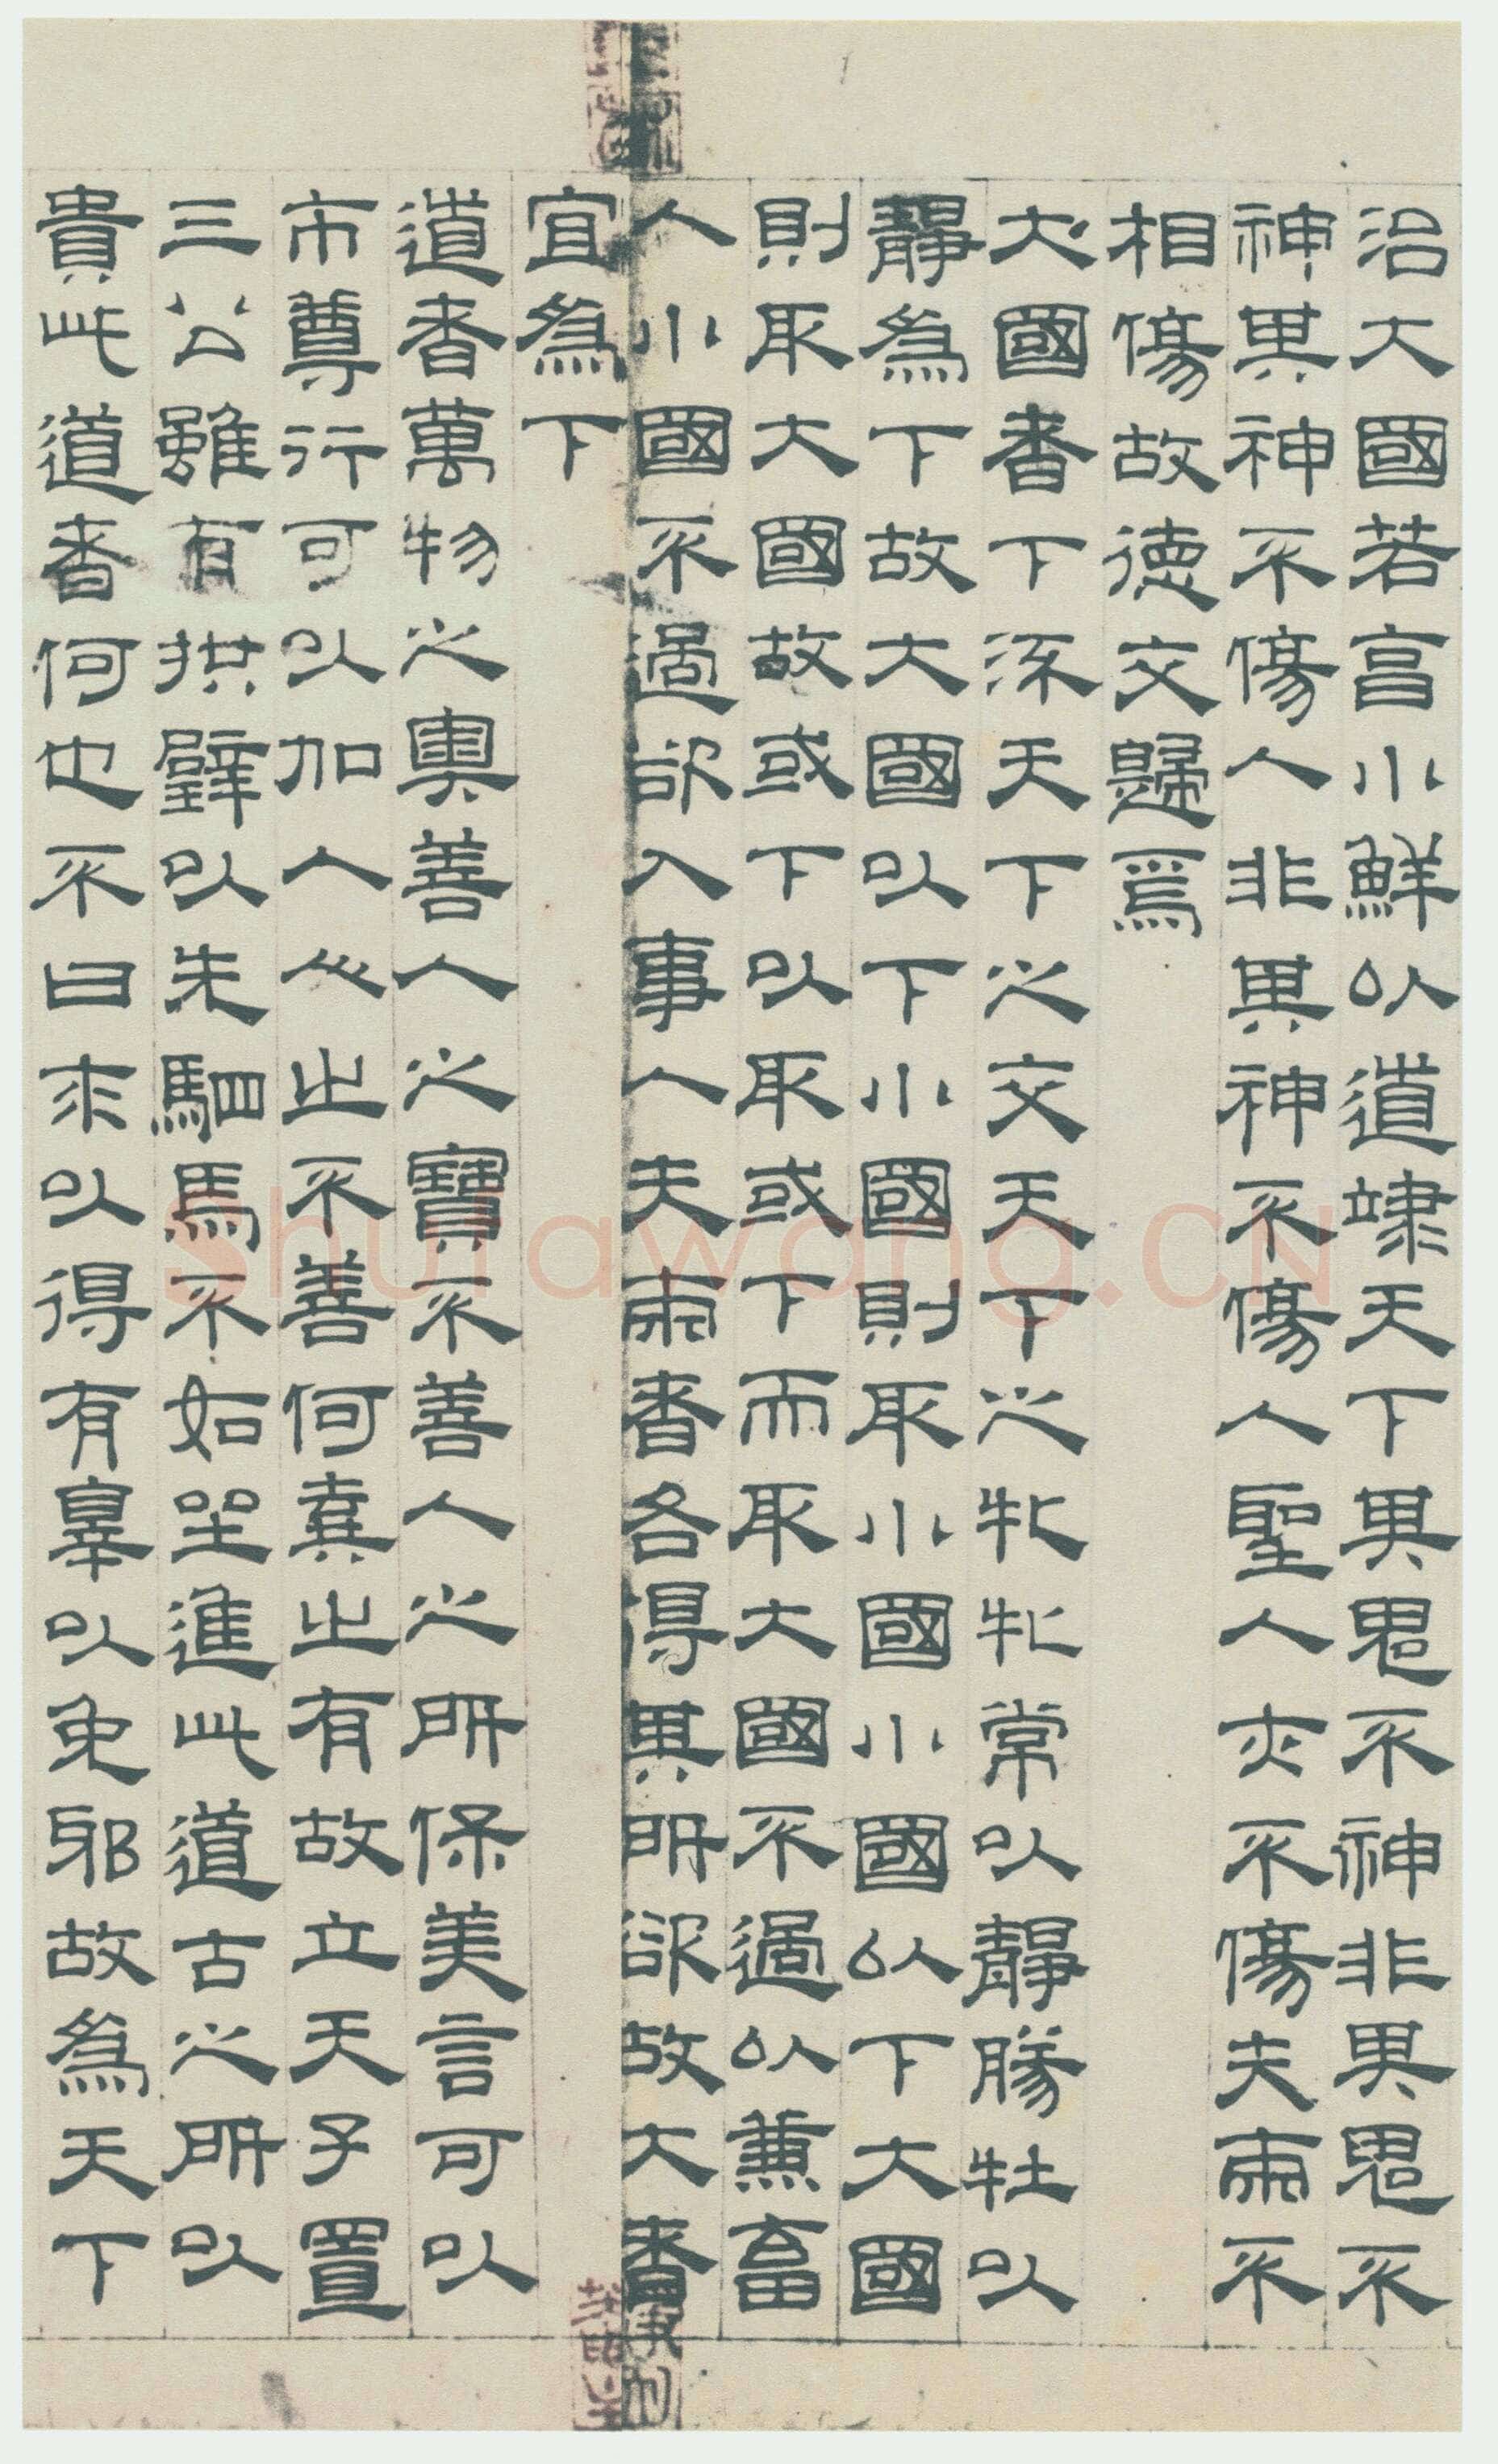 治大國若亯小鮮以道䇐天下其鬼不神非其鬼不
神其神不傷人非其神不傷人聖人亦不傷夫兩不
相傷故德交歸焉
大國者下流天下之交天下之牝牝常以靜勝牡以
靜為下故大國以下小國則取小國小國以下大國
則取大國故或下以取或下而取大國不過以兼畜
人小國不過欲入事人夫兩者各得其所欲故大者
宜為下
道者萬物之奧善人之寶不善人之所保美言可以
市尊行可以加人人之不善何棄之有故立天子置
三公雖有拱璧以先駟馬不如坐進此道古之所以
貴此道者何也不曰求以得有辠以免邪故為天下
shufawang.CN